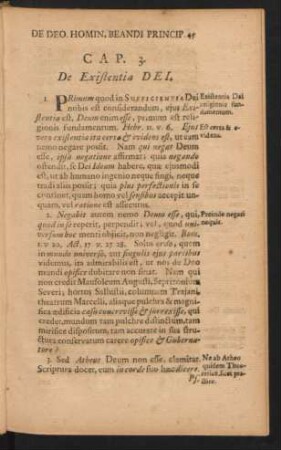 DE DEO. HOMIN. BEANDI PRINCIP. 45
CAP. 3.
De Existentia DEI.
1. PRimum quod in SUFFICIENTIA Dei
nobis est considerandum, ejus Exi-
stentia est, Deum enim esse, primum est reli-
gionis fundamentum. Hebr. 11. v. 6. Ejus
vero existentia ita certa & evidens est, ut eam
nemo negare possit. Nam qui negat Deum
esse, ipsa negatione affirmat: quia negando
ostendit, se Dei Ideam habere, quæ ejusmodi
est, ut ab humano ingenio neque fingi, neque
tradi aliis possit; quia plus perfectionis in se
continet, quam homo vel sensibus accepit un-
quam, vel ratione est assecutus.
Existentia Dei
religionis fun-
damentum.
Est certa & e-
videns.
2. Negabit autem nemo Deum esse, qui,
quod in se reperit, perpendit; vel, quod uni-
versum hoc mentis objicit, non negligit. Rom.
1. v. 20. Act. 17. v. 27. 28. Solus ordo, quem
in mundo universo, aut singulis ejus partibus
videmus, ita admirabilis est, ut nos de Deo
mundi opifice dubitare non sinat. Nam qui
non credit Mausoleum Augusti, Septizonium
Severi; hortos Sallustii, columnam Trajani,
theatrum Marcelli, aliaque pulchra & magni-
fica ædificia casu concrevisse & surrexisse, qui
credat, mundum tam pulchre distinctum, tam
mirifice dispositum, tam accurate in sua stru-
ctura conservatum carere opifice & Guberna-
tore?
Proinde negari
nequit.
3. Sed Atheus Deum non esse, clamitat.
Scriptura docet, eum in corde suo hæc dicere.
Ps.
Ne ab Atheo
quidem